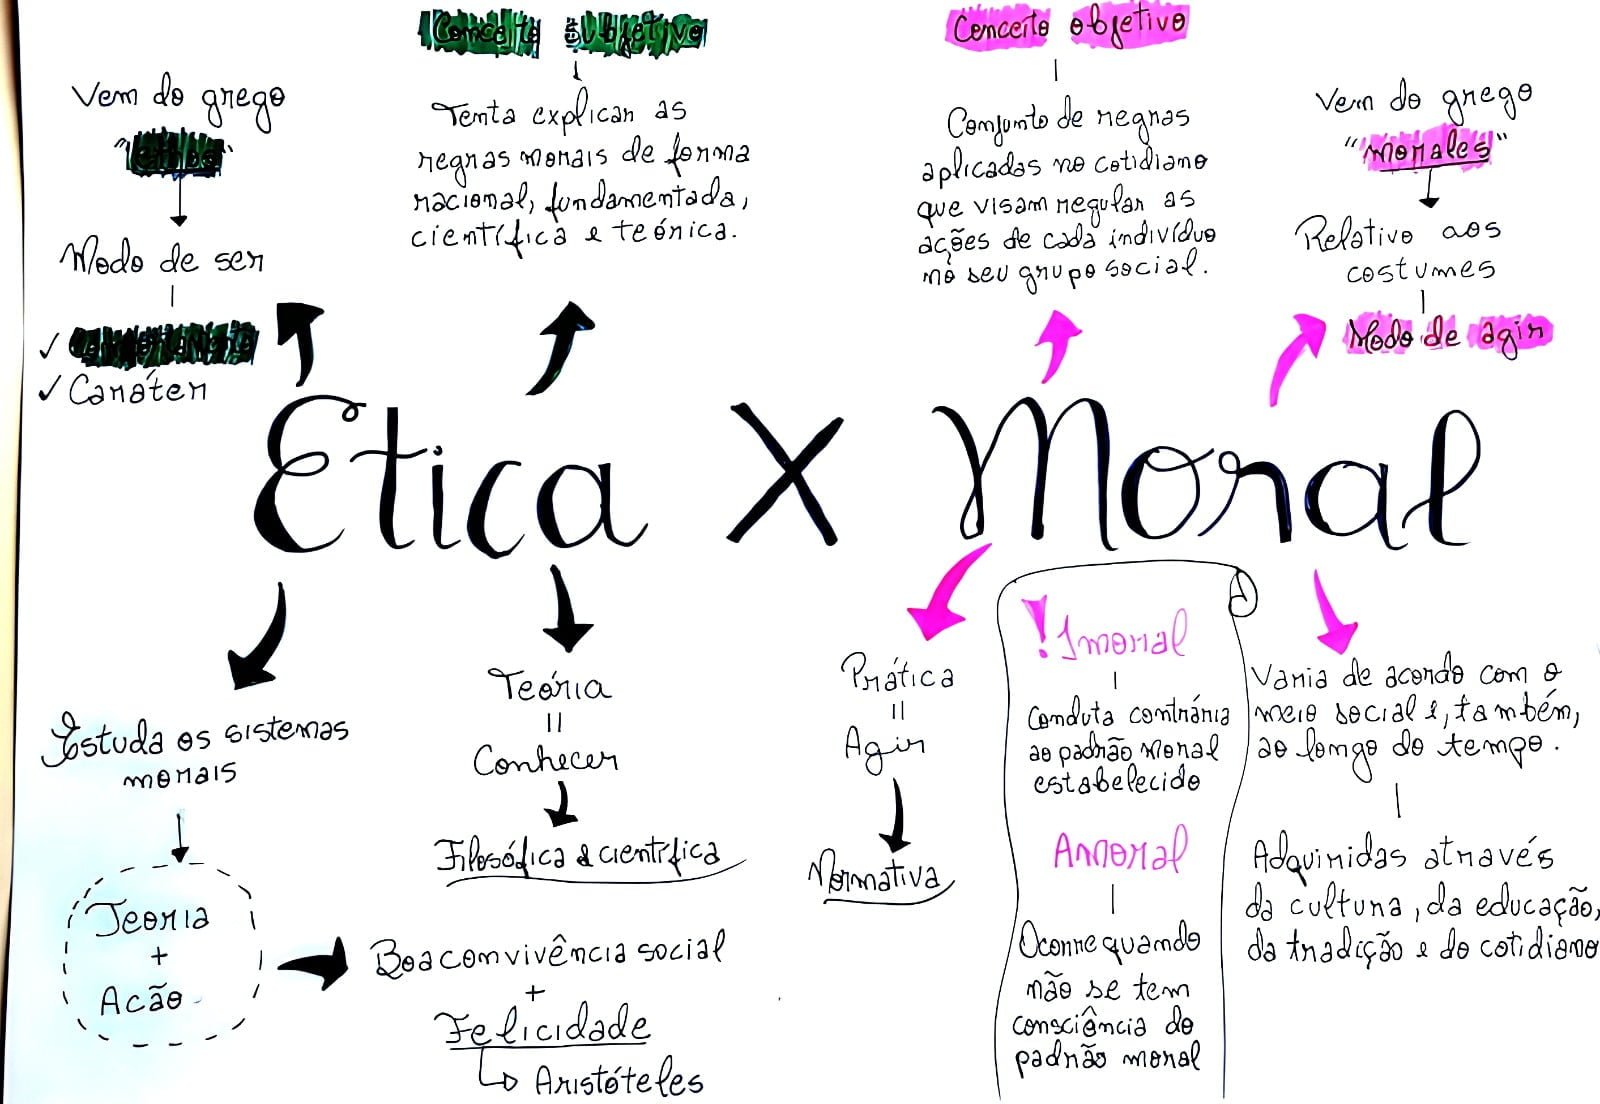 Conceito subjetivo
Conceito objetivo
Vem do grego
"ethos"
Modo de ser
✓ Comportamento
✓ Caráter
Tenta explicar as
regras morais de forma
racional, fundamentada,
científica e teórica.
Conjunto de regras
aplicadas no cotidiano
que visam regular as
ações de cada indivíduo
no seu grupo social.
Vem do grego
"morales"
Relativo aos
costumes
Modo de agir
Etica X Moral
Estuda os sistemas
morais
Teoria
+
Acão
Teória
=
Conhecer
Filosófica e científica
Boa convivência social
+
Felicidade
Aristóteles
Prática
=
Agir
Normativa
! Imoral
Conduta contrária
ao padrão moral
estabelecido
Amoral
Ocorre quando
não se tem
consciência do
padrão moral
Varia de acordo com o
meio social e, também,
ao longo do tempo.
Adquiridas através
da cultura, da educação,
da tradição e do cotidiano